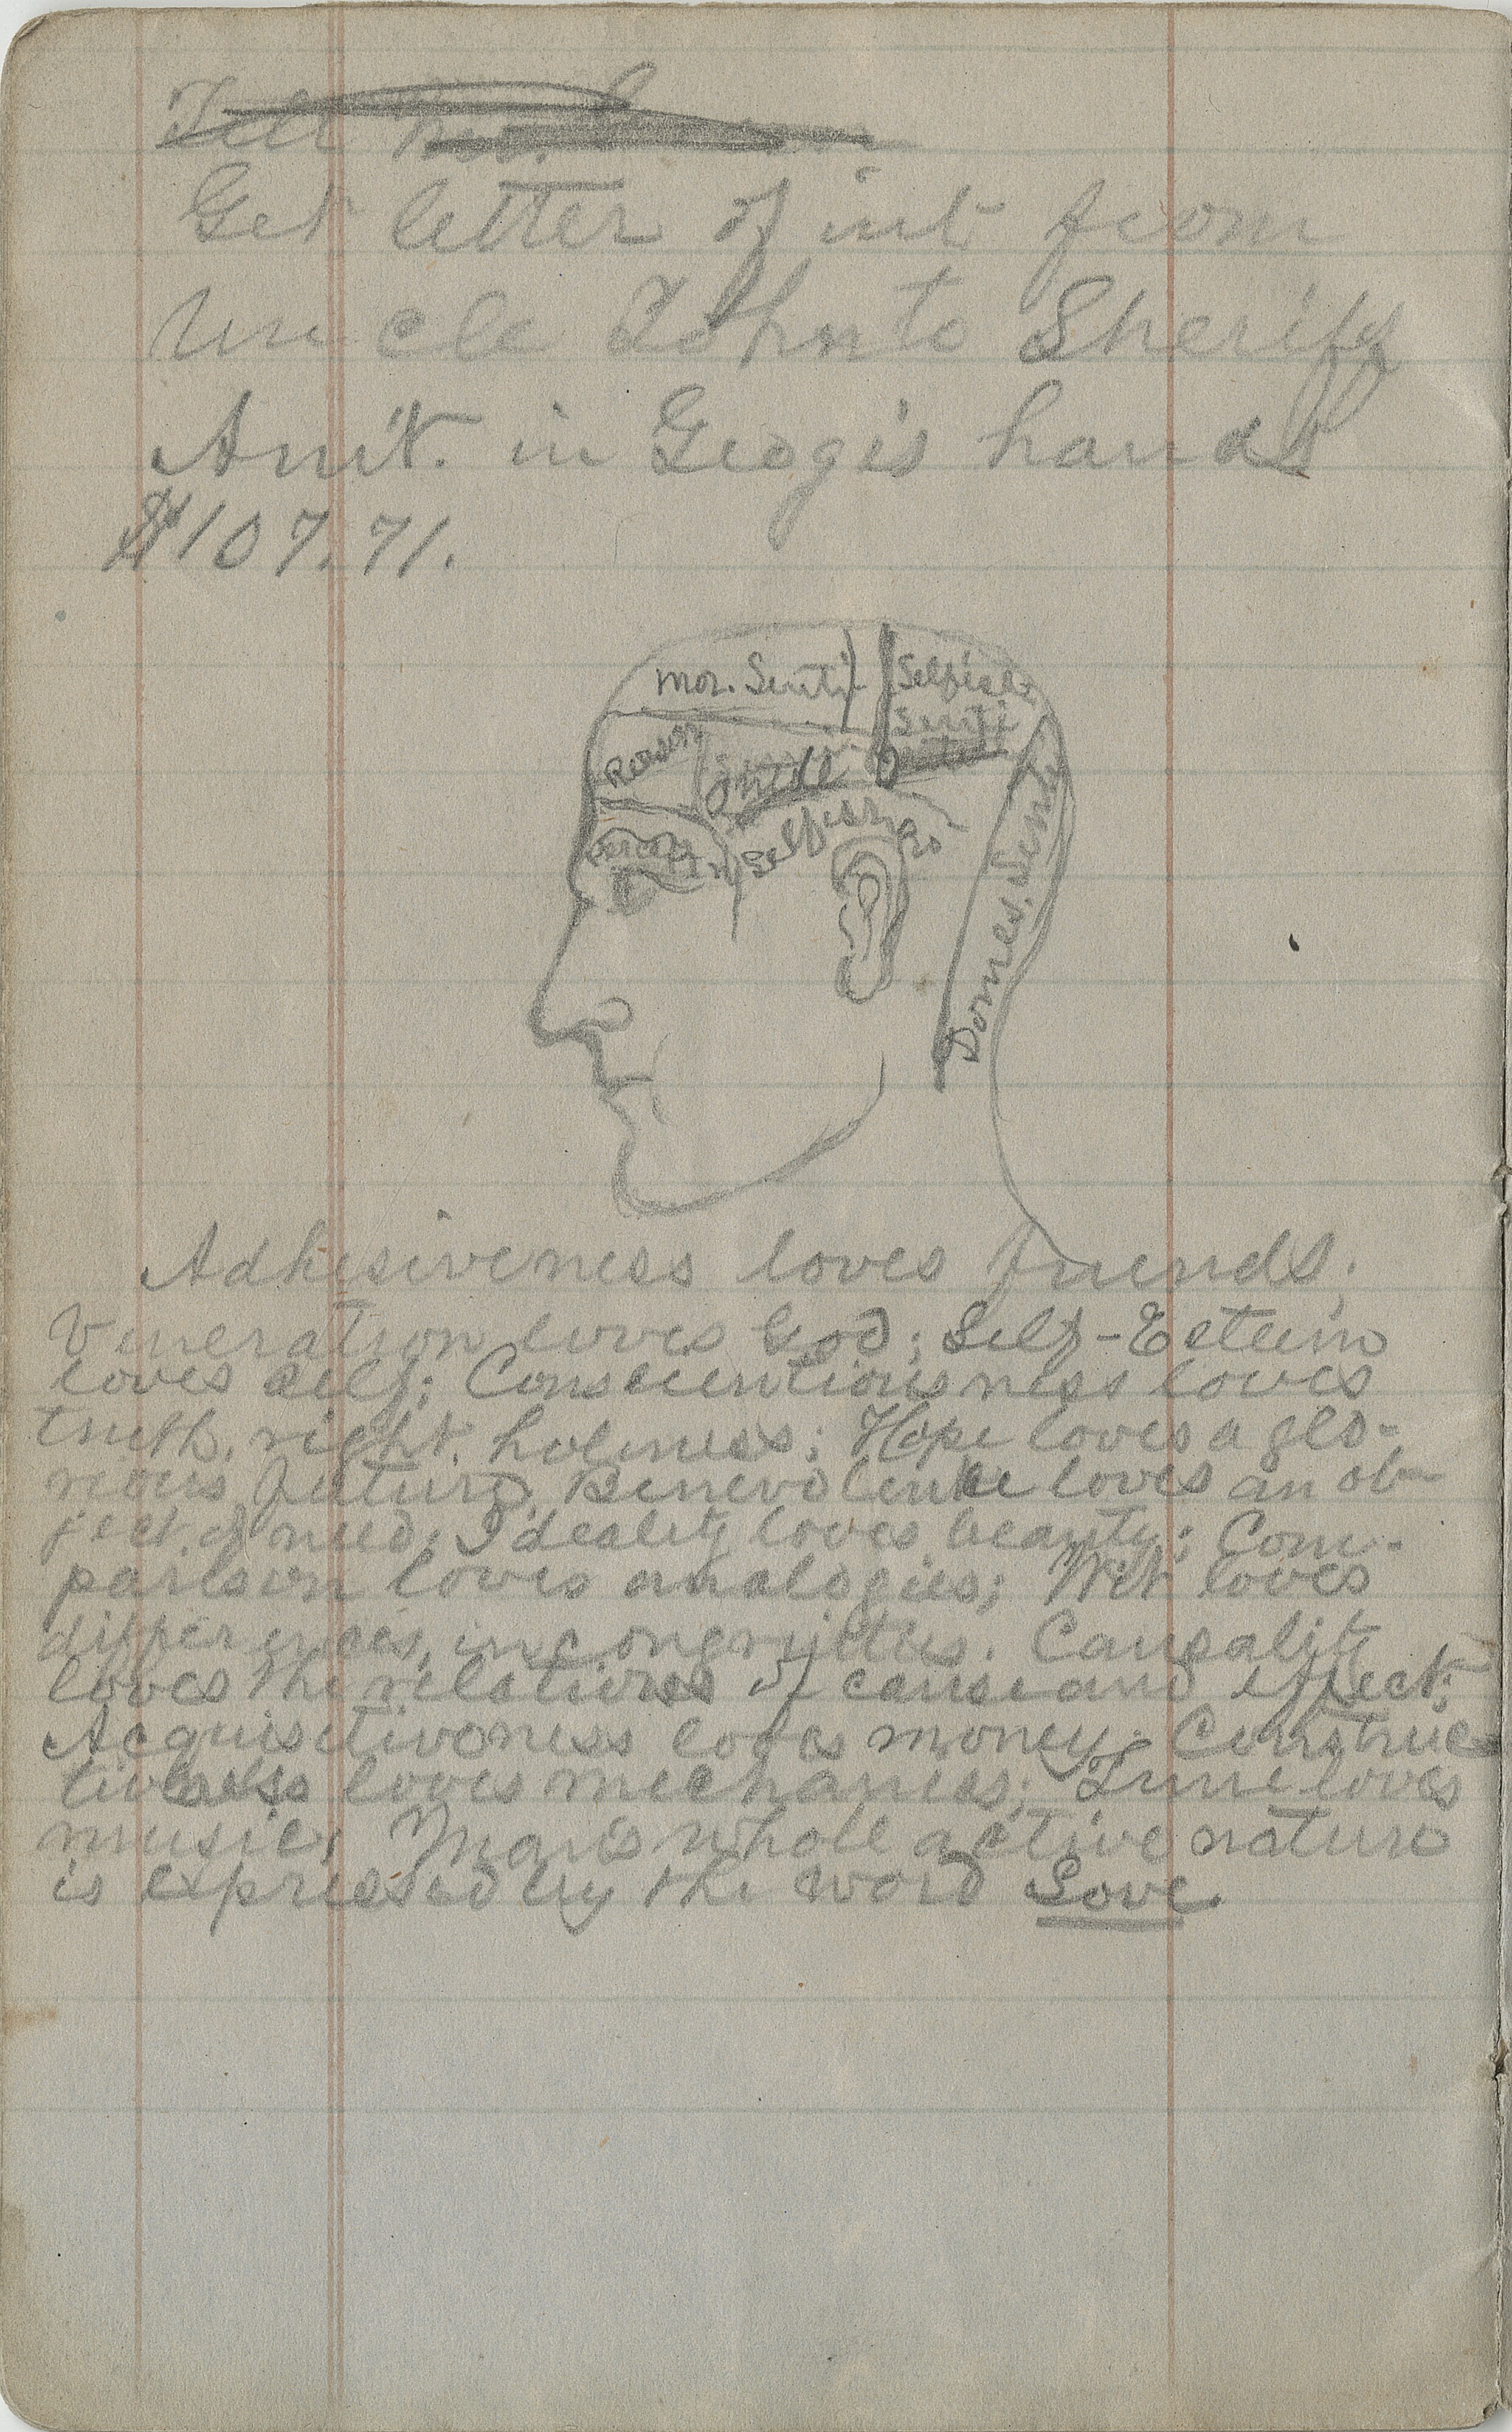 Tell
Get letter of int from
Uncle John to Sheriff
Am't. in Geog's hands
$107.71.
Mor. Senti
Selfish
Senti
Reason
Selfish
Domes. Senti
Adhesiveness loves friends.
Veneration loves God; Self-Esteem
loves self; Conscientiousness loves
truth, right, holiness; Hope loves a glo-
rious future; Benevolence loves an ob-
ject of need; Ideality loves beauty; Com-
parison loves analogies; Wit loves
differences, incongruities. Causality
loves the relations of cause and effect;
Acquisitiveness loves money. Construc
tiveness loves mechanics; Tune loves
music; Man's whole active nature
is expressed by the word Love.